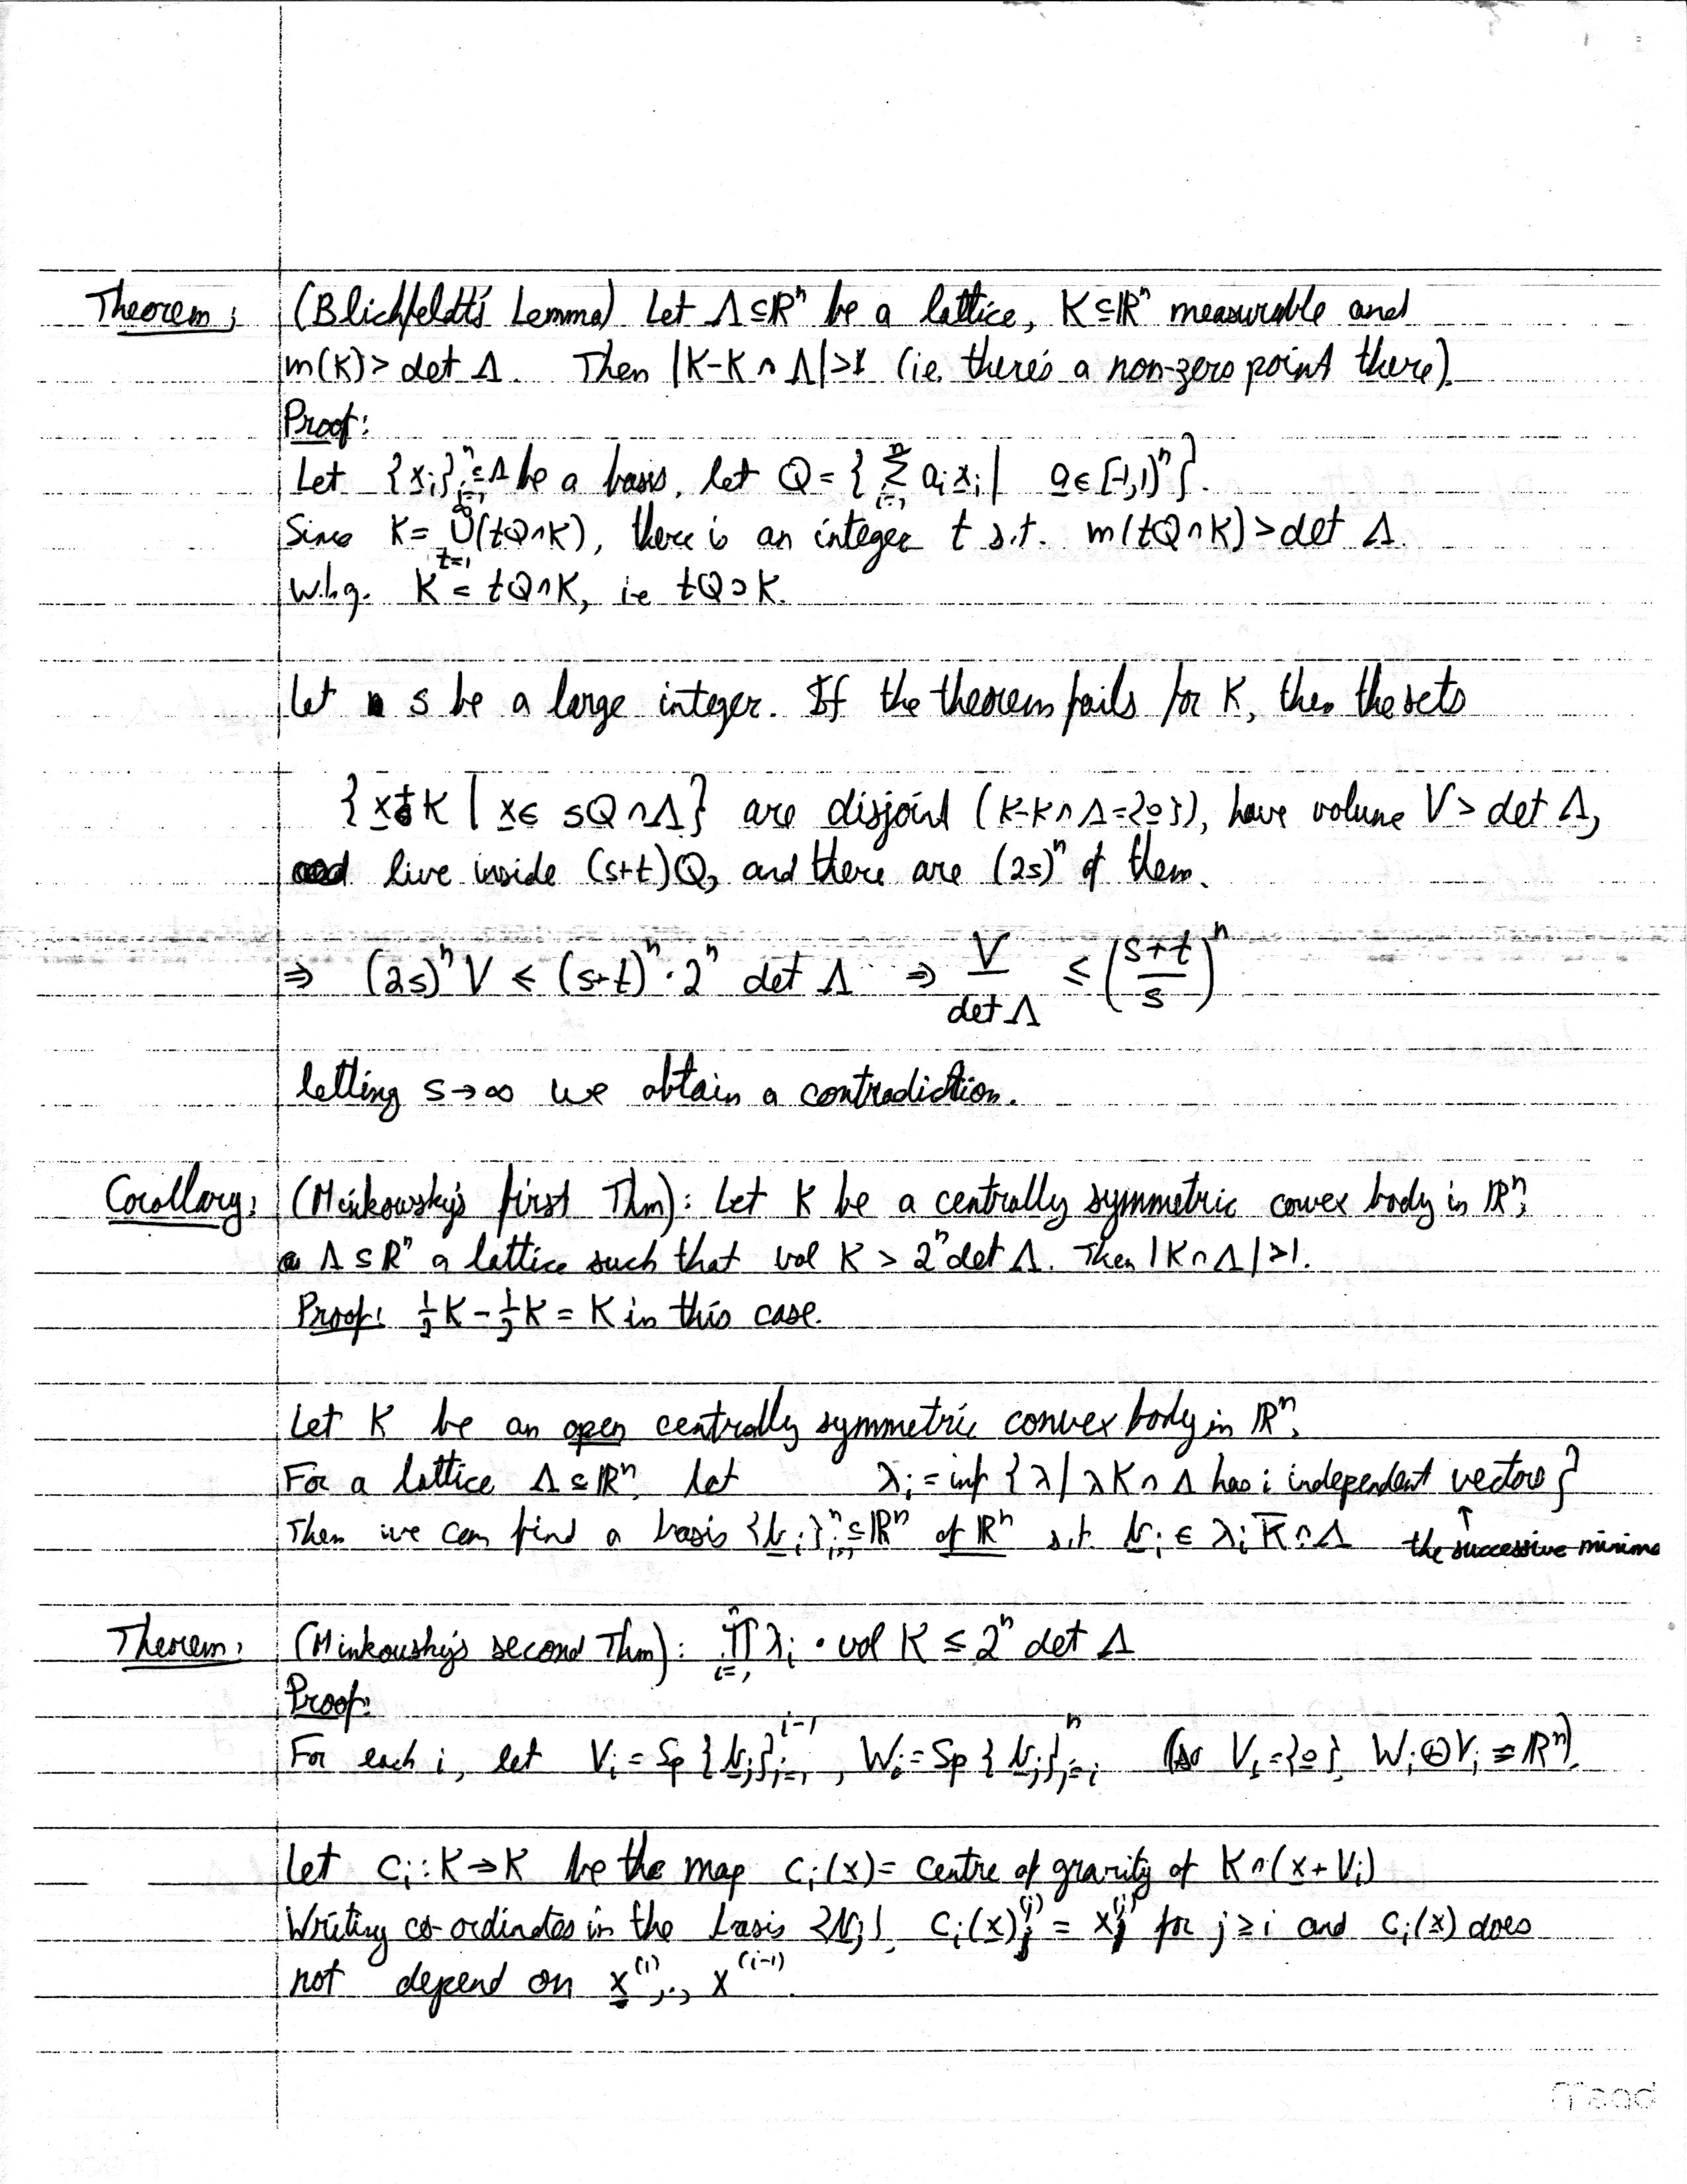 Theorem: (Blichfeldt's Lemma) Let Λ⊆ℝⁿ be a lattice, K⊆ℝⁿ measurable and
m(K) > det Λ. Then |K-K ∩ Λ|>1 (i.e. there's a non-zero point there).
Proof:
Let {x̲ᵢ}ⁿᵢ₌₁ ⊆ Λ be a basis, let Q = { Σⁿᵢ₌₁ aᵢx̲ᵢ | a̲ ∈ [-1,1)ⁿ }.
Since K = ∪^∞_{t=1} (tQ∩K), there is an integer t s.t. m(tQ∩K) > det Λ.
W.l.g. K = tQ∩K, i.e tQ⊃K.
Let s be a large integer. If the theorem fails for K, then the sets
{x̲+K | x̲ ∈ sQ∩Λ} are disjoint (K-K∩Λ={0̲}), have volume V > det Λ,
live inside (s+t)Q, and there are (2s)ⁿ of them.
⇒ (2s)ⁿ V ≤ (s+t)ⁿ·2ⁿ det Λ ⇒ V/det Λ ≤ ((s+t)/s)ⁿ
letting s→∞ we obtain a contradiction.
Corollary: (Minkowsky's first Thm): Let K be a centrally symmetric convex body in ℝⁿ,
Λ⊆ℝⁿ a lattice such that vol K > 2ⁿ det Λ. Then |K∩Λ|>1.
Proof: ½K - ½K = K in this case.
Let K be an open centrally symmetric convex body in ℝⁿ.
For a lattice Λ⊆ℝⁿ, let λᵢ = inf {λ | λK∩Λ has i independent vectors}
Then we can find a basis {v̲ᵢ}ⁿᵢ₌₁ ⊆ ℝⁿ of ℝⁿ s.t. v̲ᵢ ∈ λᵢK̅∩Λ ↑ the successive minima
Theorem: (Minkowsky's second Thm): Πⁿᵢ₌₁ λᵢ · vol K ≤ 2ⁿ det Λ
Proof:
For each i, let Vᵢ = Sp {v̲ⱼ}ⁱ⁻¹ⱼ₌₁, Wᵢ = Sp {v̲ⱼ}ⁿⱼ₌ᵢ (so V₁={0̲}, Wᵢ⊕Vᵢ = ℝⁿ).
Let cᵢ: K→K be the map cᵢ(x) = centre of gravity of K∩(x̲+Vᵢ)
Writing co-ordinates in the basis {v̲ⱼ}, cᵢ(x̲)⁽ʲ⁾ = x⁽ʲ⁾ for j≥i and cᵢ(x̲) does
not depend on x̲⁽¹⁾,.., x⁽ⁱ⁻¹⁾.